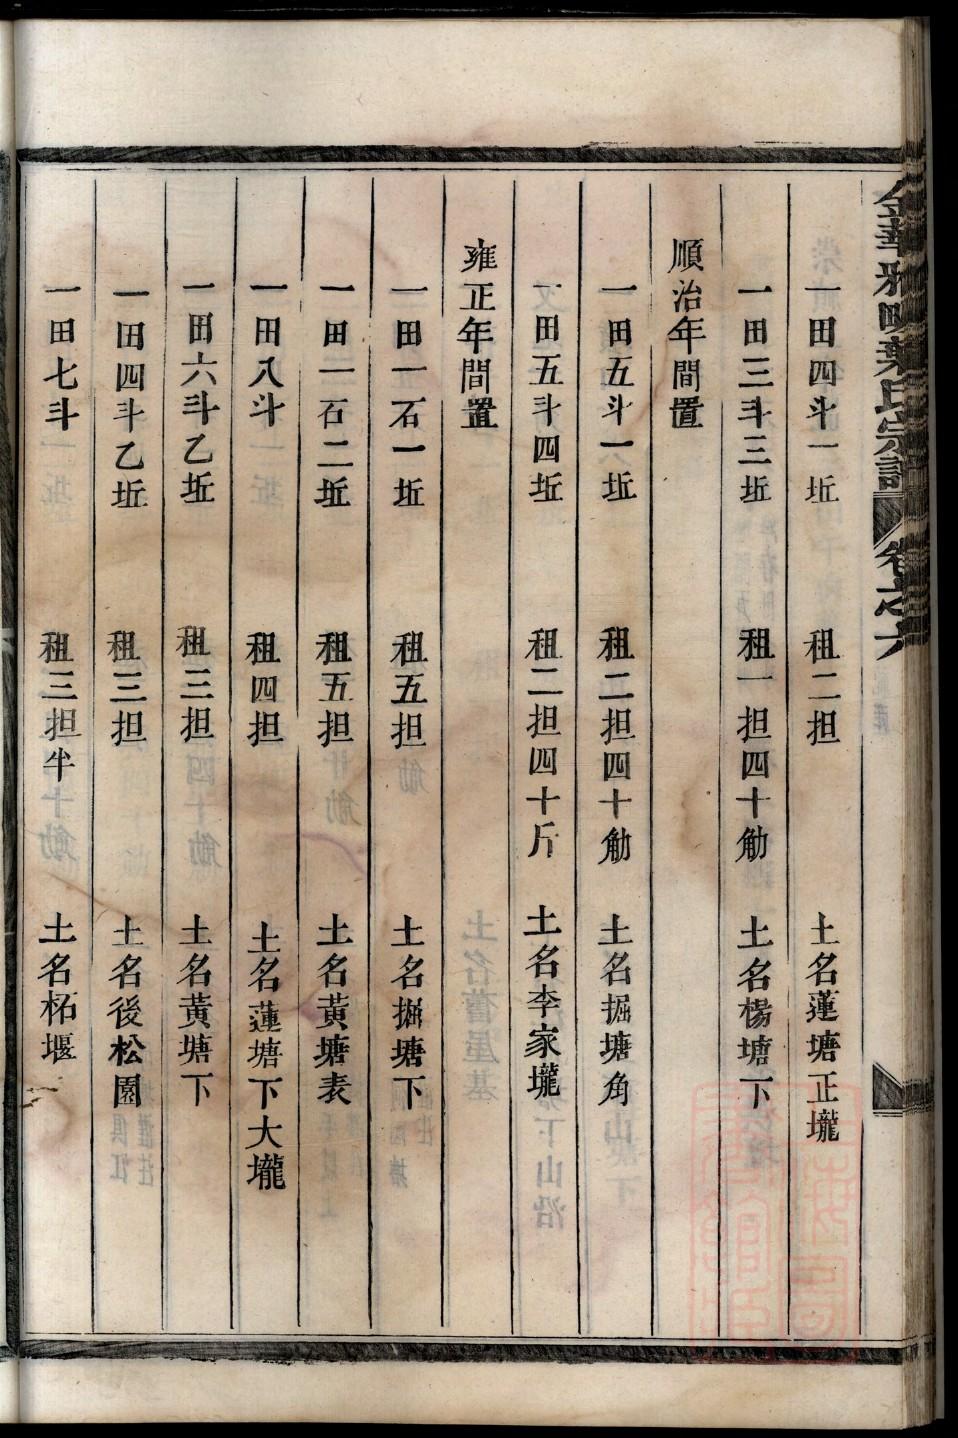 一田四斗一坵 租二担 土名蓮塘正壠
一田三斗三坵 租一担四十觔 土名楊塘下
順治年間置
一田五斗一坵 租二担四十觔 土名掘塘角
一田五斗四坵 租二担四十斤 土名李家壠
雍正年間置
一田一石一坵 租五担 土名掘塘下
一田一石二坵 租五担 土名黃塘表
一田八斗 租四担 土名蓮塘下大壠
一田六斗乙坵 租三担 土名黃塘下
一田四斗乙坵 租三担 土名後松園
一田七斗 租三担半 土名柘堰